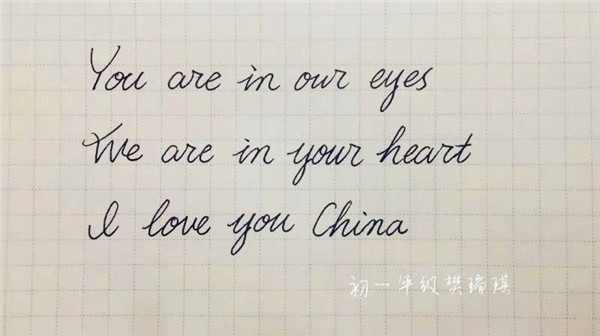 You are in our eyes
We are in your heart
I love you China
初一年级樊瑞琪